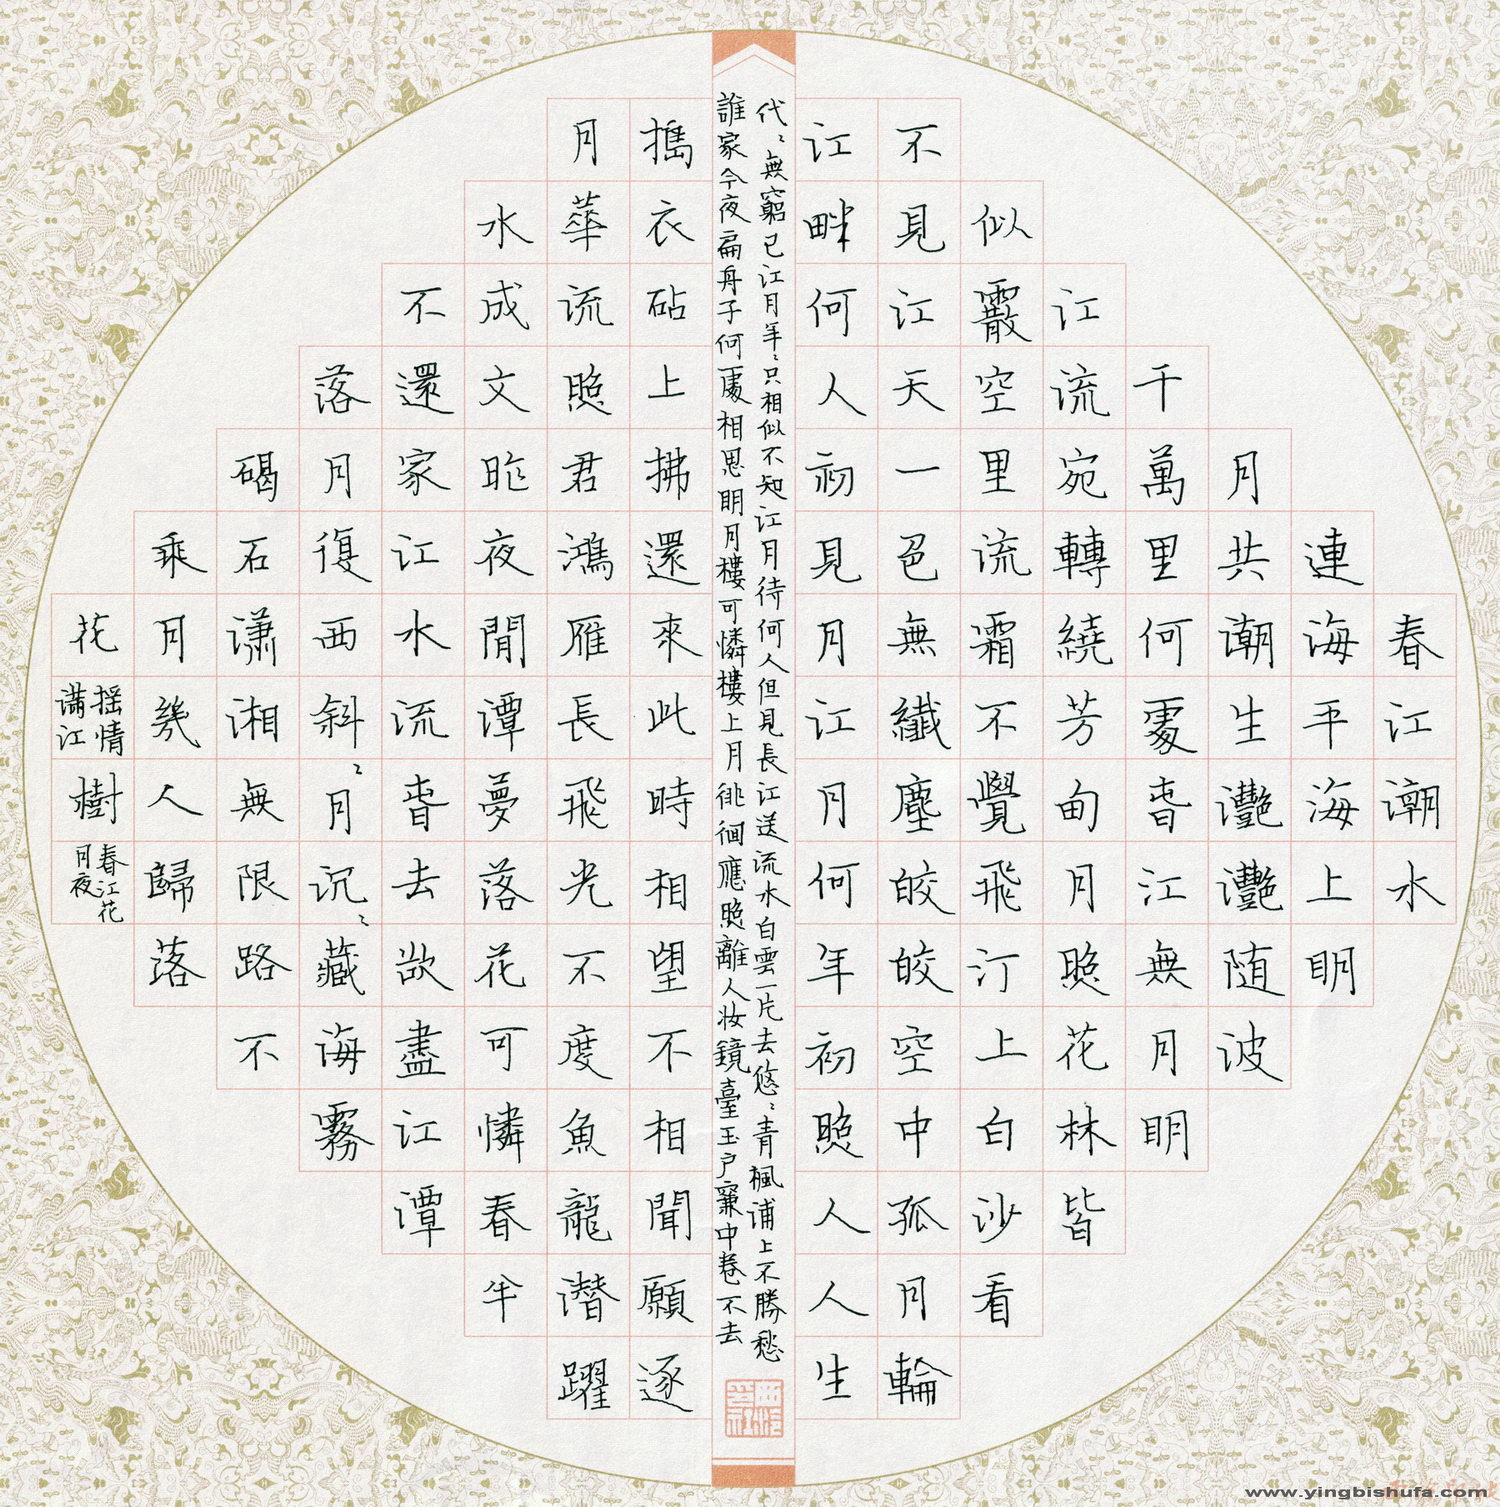 春江潮水
連海平海上明
月共潮生灧灧随波
千萬里何處春江無月明
江流宛轉繞芳甸月照花林皆
似霰空里流霜不覺飛汀上白沙看
不見江天一色無纖塵皎皎空中孤月輪
江畔何人初見月江月何年初照人人生
代〻無窮已江月年〻只相似不知江月待何人但見長江送流水白雲一片去悠〻青楓浦上不勝愁
誰家今夜扁舟子何處相思明月樓可憐樓上月徘徊應照離人妝鏡臺玉户簾中卷不去
搗衣砧上拂還來此時相望不相聞願逐
月華流照君鴻雁長飛光不度魚龍潛躍
水成文昨夜閒潭夢落花可憐春半
不還家江水流春去欲盡江潭
落月復西斜〻月沉〻藏海霧
碣石潇湘無限路不
乘月幾人歸落
花搖情满江樹春江花月夜
www.yingbishufa.com